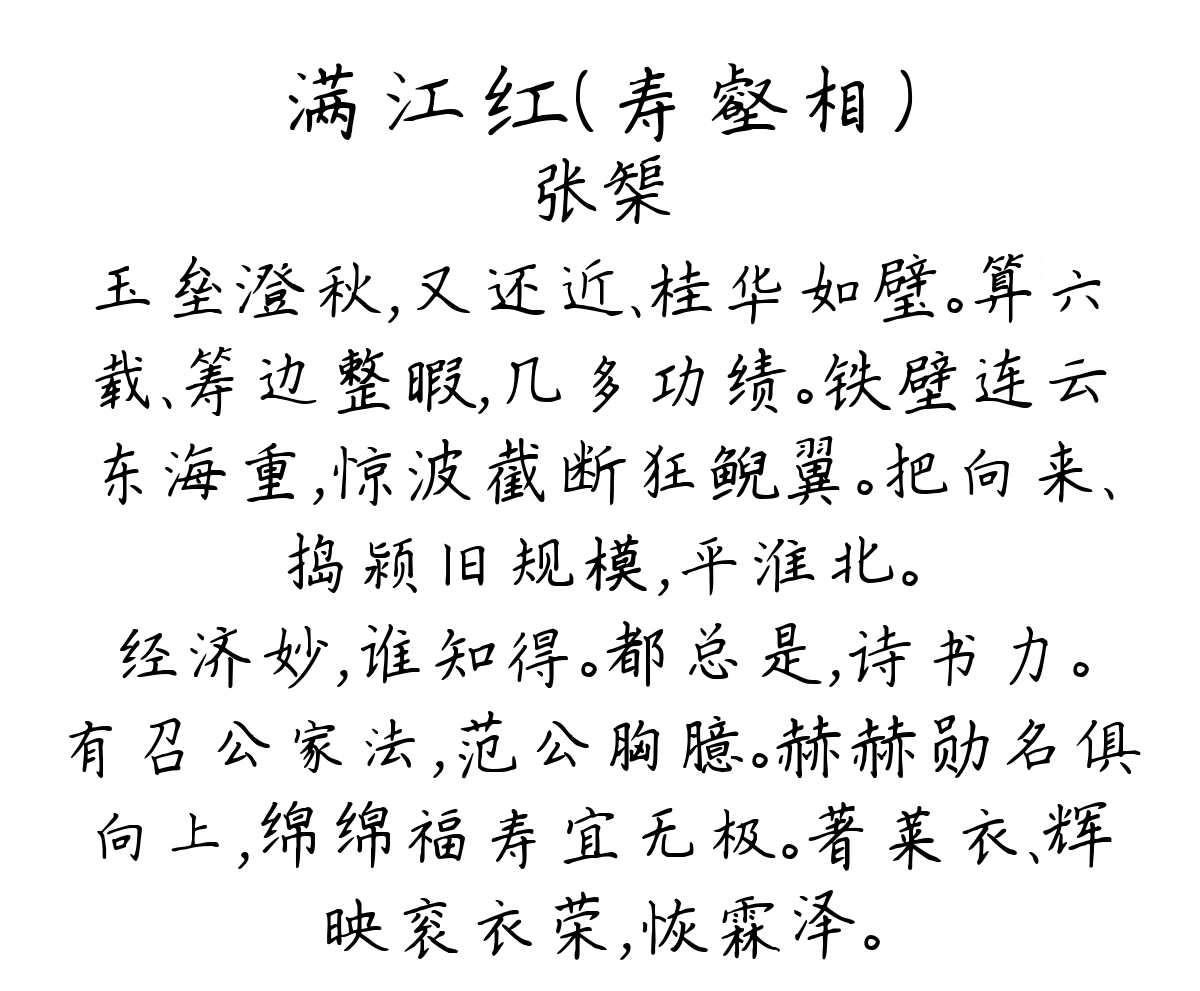 满江红(寿壑相)
张榘
玉垒澄秋,又还近、桂华如璧。算六
载、筹边整暇,几多功绩。铁壁连云
东海重,惊波截断狂鲵翼。把向来、
捣颍旧规模,平淮北。
经济妙,谁知得。都总是,诗书力。
有召公家法,范公胸臆。赫赫勋名俱
向上,绵绵福寿宜无极。著莱衣、辉
映衮衣荣,恢霖泽。